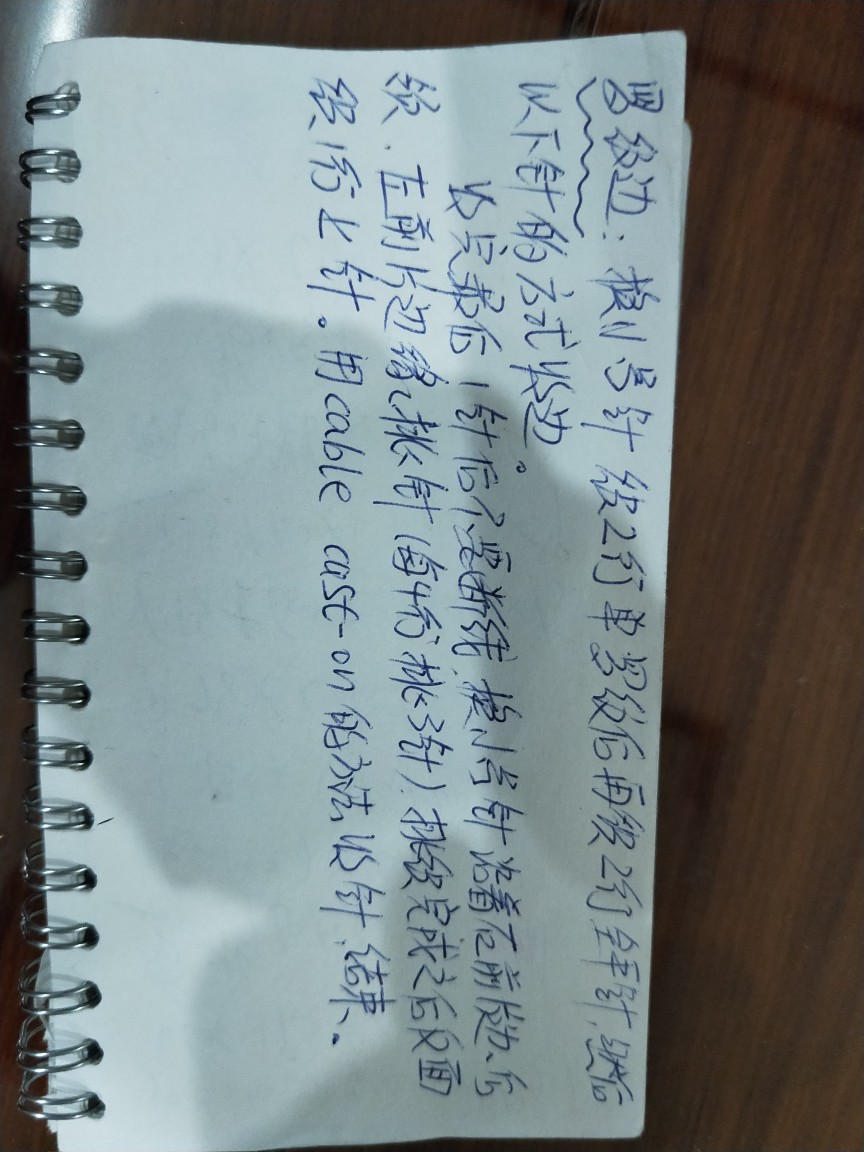 罗纹边：换小号针织2行单罗纹后再织2行全平针，然后
以下针的方式收边。
收完最后1针后不要断线，换小号针沿着右前片边、后
领、左前片边缘挑针（每4行挑3针）．挑织完成之后反面
织1行上针。用cable cast-on的方法收针，结束。